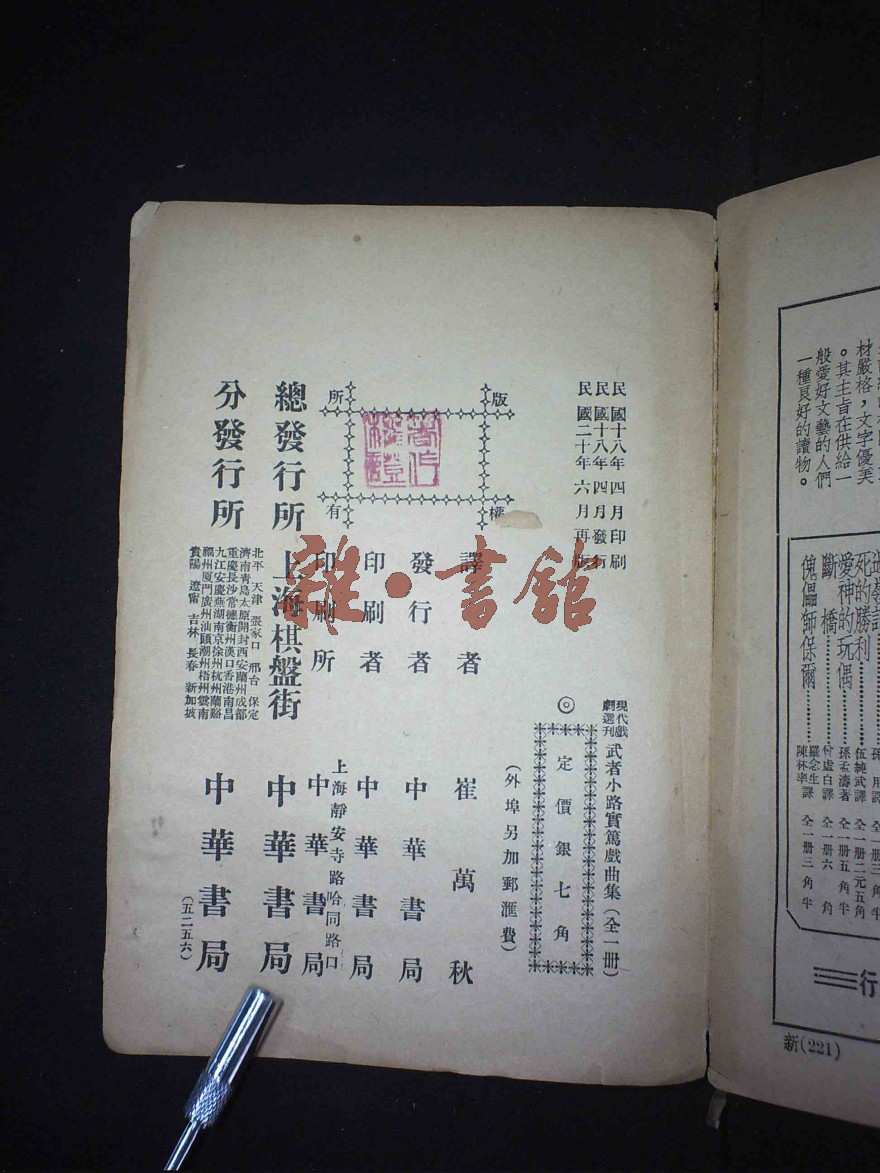 民國十八年四月印刷
民國十八年四月發行
民國二十年六月再版
現代戲
劇選刊
武者小路實篤戲曲集(全一册)
◎
定價銀七角
(外埠另加郵滙費)
版權所有
著作權證
譯者 崔萬秋
發行者 中華書局
印刷者 中華書局
印刷所 上海靜安寺路哈同路口
中華書局
總發行所 上海棋盤街 中華書局
分發行所
北平 天津 張家口 邢台 保定
濟南青島太原開封西安蘭州成都
重慶長沙常德衡州漢口香港南昌
九江安慶蕪湖南京徐州杭州蘭谿
福州厦門廣州汕頭潮州梧州雲南
貴陽 遼甯 吉林 長春 新加坡
中華書局
(五二五六)
雜·書館
材嚴格,文字優美
。其主旨在供給一
般愛好文藝的人們
一種良好的讀物。
死的勝利 伍純武譯 全一册二元五角
愛神的玩偶 孫孟濤著 全一册五角半
斷橋 曾虛白譯 全一册六角
傀儡師保爾 羅念生 陳林率譯 全一册三角半
行
新(221)